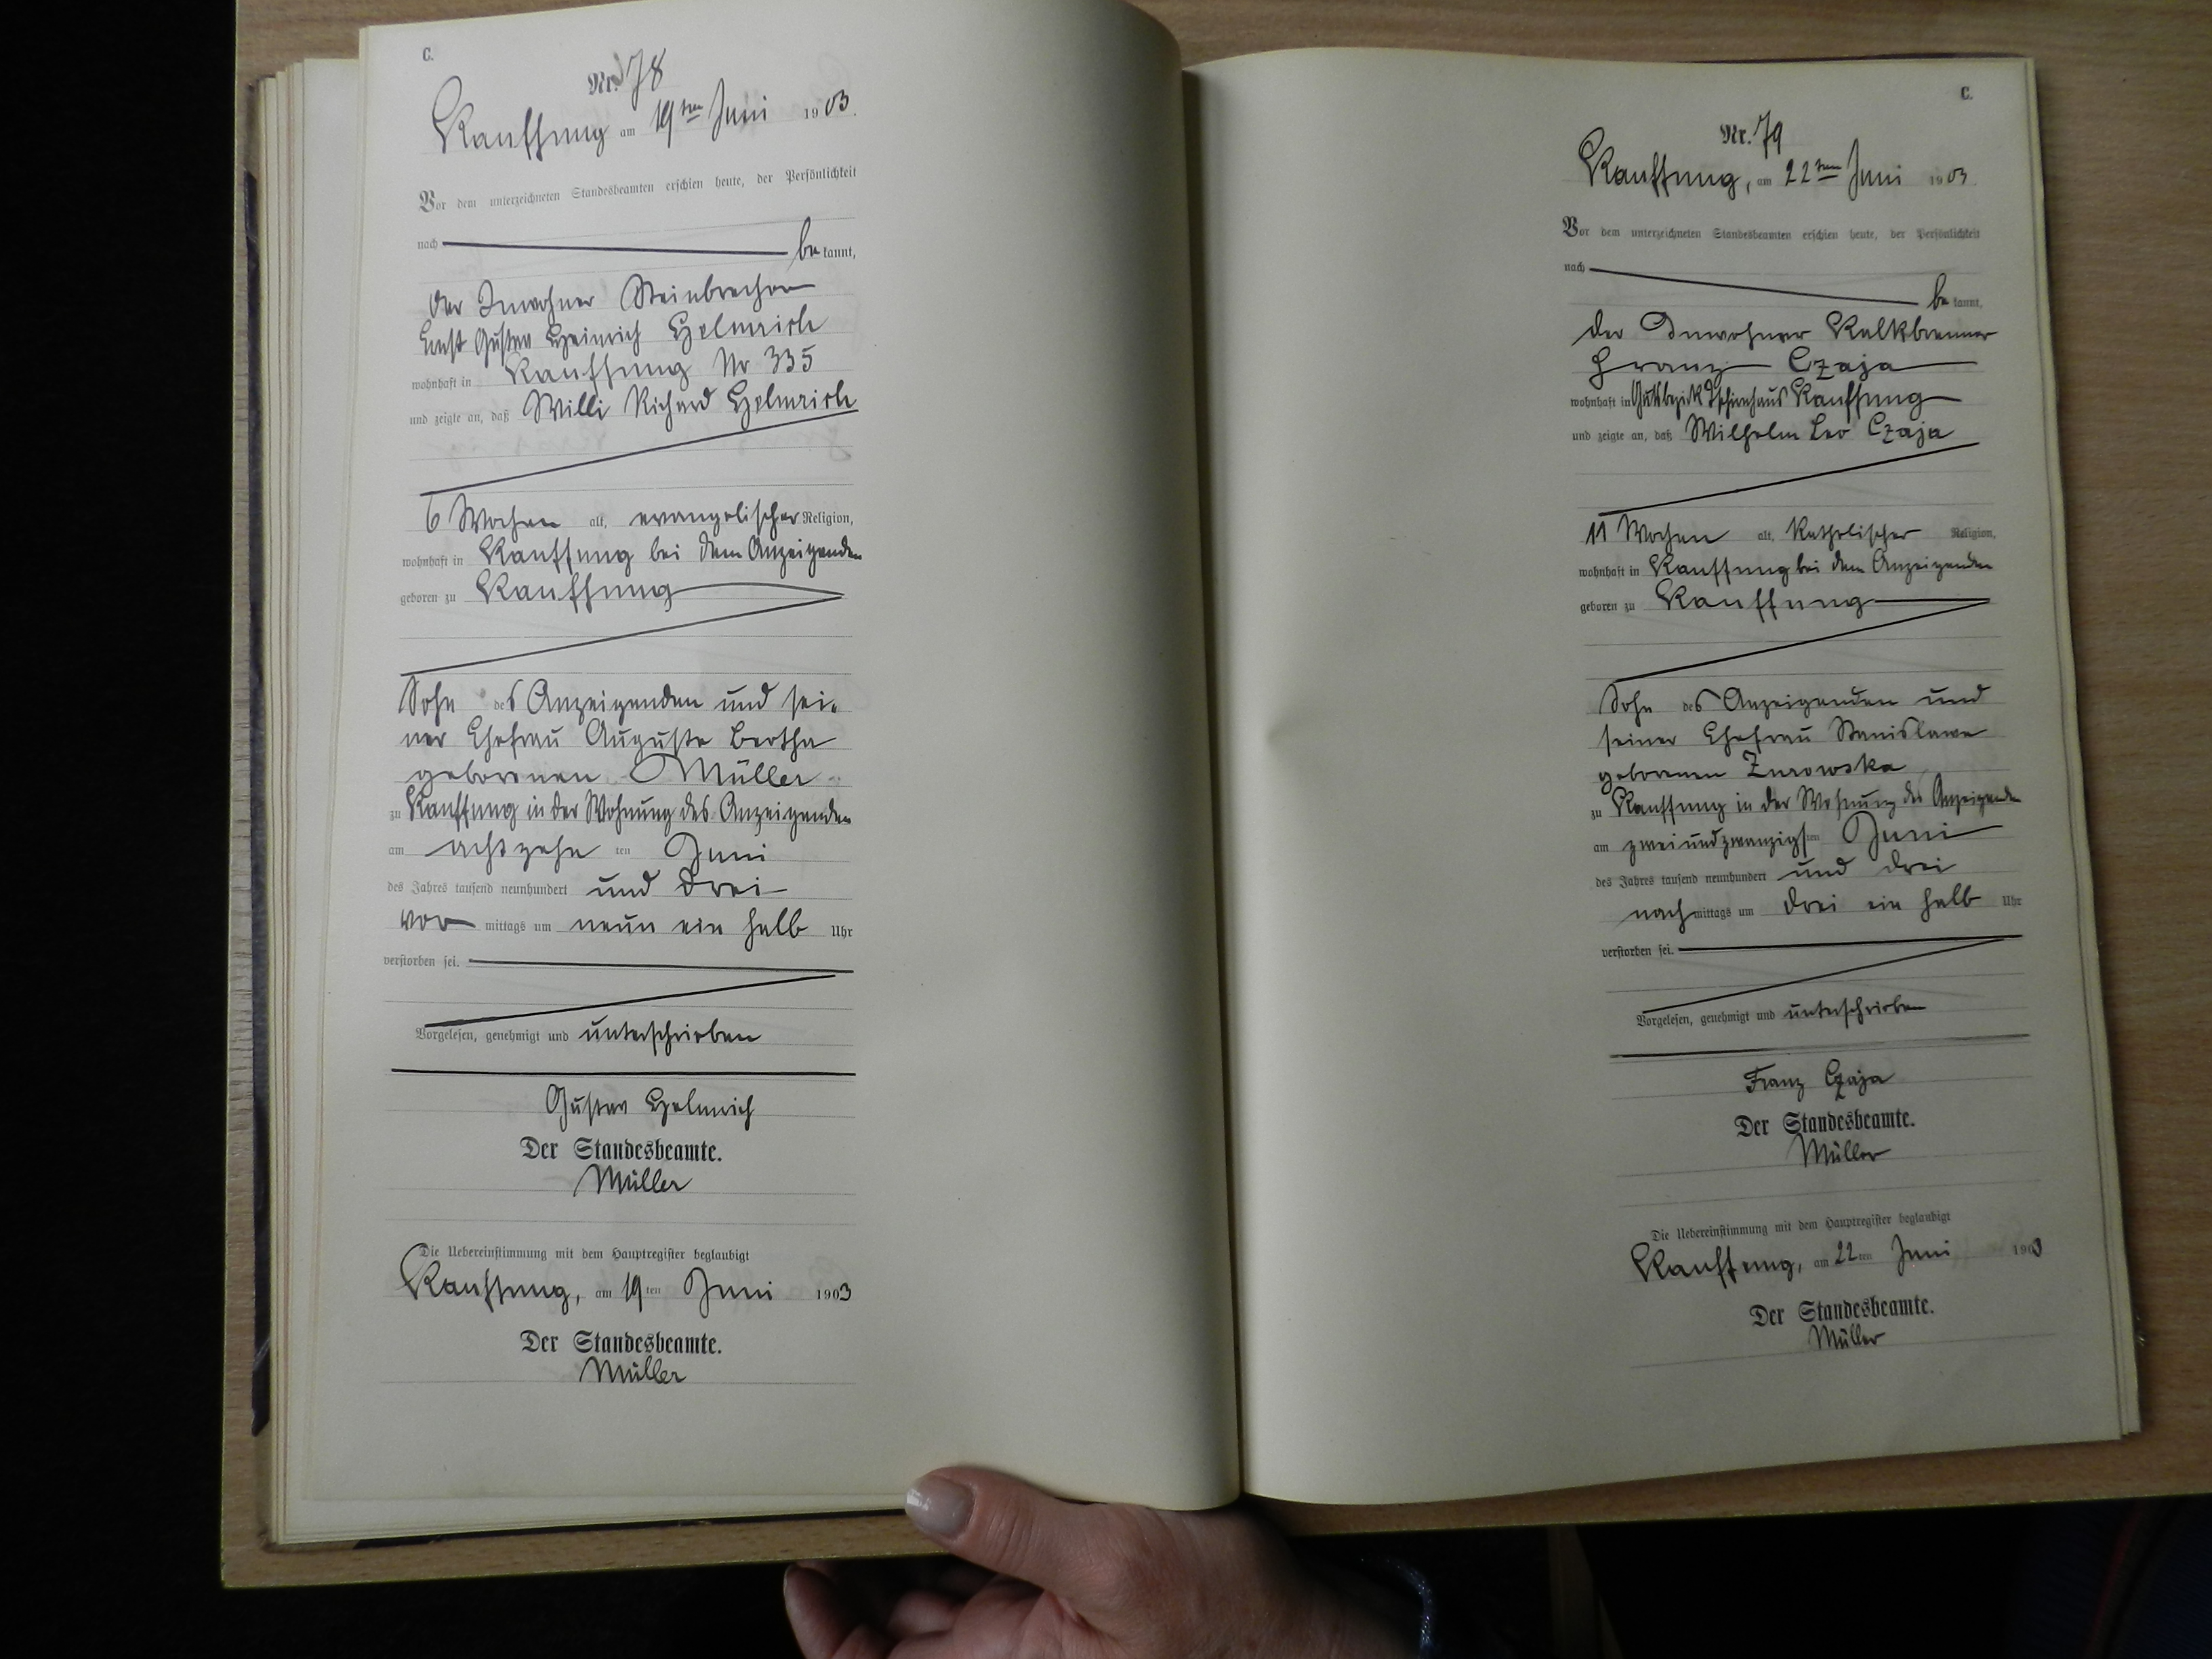 C.
Nr. 78
Kauffung am 19ten Juni 1903.
Vor dem unterzeichneten Standesbeamten erschien heute, der Persönlichkeit
nach be kannt,
der Inwohner Steinbrecher
Ernst Gustav Heinrich Helmrich
wohnhaft in Kauffung Nr 335
und zeigte an, daß Willi Richard Helmrich
6 Wochen alt, evangelischer Religion,
wohnhaft in Kauffung bei dem Anzeigenden
geboren zu Kauffung
Sohn des Anzeigenden und sei-
ner Ehefrau Auguste Bertha
geborenen Müller
zu Kauffung in der Wohnung des Anzeigenden
am achtzehn ten Juni
des Jahres tausend neunhundert und drei
vor mittags um neun ein halb Uhr
verstorben sei.
Vorgelesen, genehmigt und unterschrieben
Gustav Helmrich
Der Standesbeamte.
Müller
Die Uebereinstimmung mit dem Hauptregister beglaubigt
Kauffung, am 19ten Juni 1903
Der Standesbeamte.
Müller
C.
Nr. 79
Kauffung, am 22ten Juni 1903.
Vor dem unterzeichneten Standesbeamten erschien heute, der Persönlichkeit
nach be kannt,
der Inwohner Kalkbrenner
Franz Czaja
wohnhaft in Gutsbezirk Tschirnhaus Kauffung
und zeigte an, daß Wilhelm Leo Czaja
11 Wochen alt, katholischer Religion,
wohnhaft in Kauffung bei dem Anzeigenden
geboren zu Kauffung
Sohn des Anzeigenden und
seiner Ehefrau Stanislawa
geborenen Zurowska
zu Kauffung in der Wohnung des Anzeigenden
am zweiundzwanzigsten Juni
des Jahres tausend neunhundert und drei
nachmittags um drei ein halb Uhr
verstorben sei.
Vorgelesen, genehmigt und unterschrieben
Franz Czaja
Der Standesbeamte.
Müller
Die Uebereinstimmung mit dem Hauptregister beglaubigt
Kauffung, am 22ten Juni 1903
Der Standesbeamte.
Müller